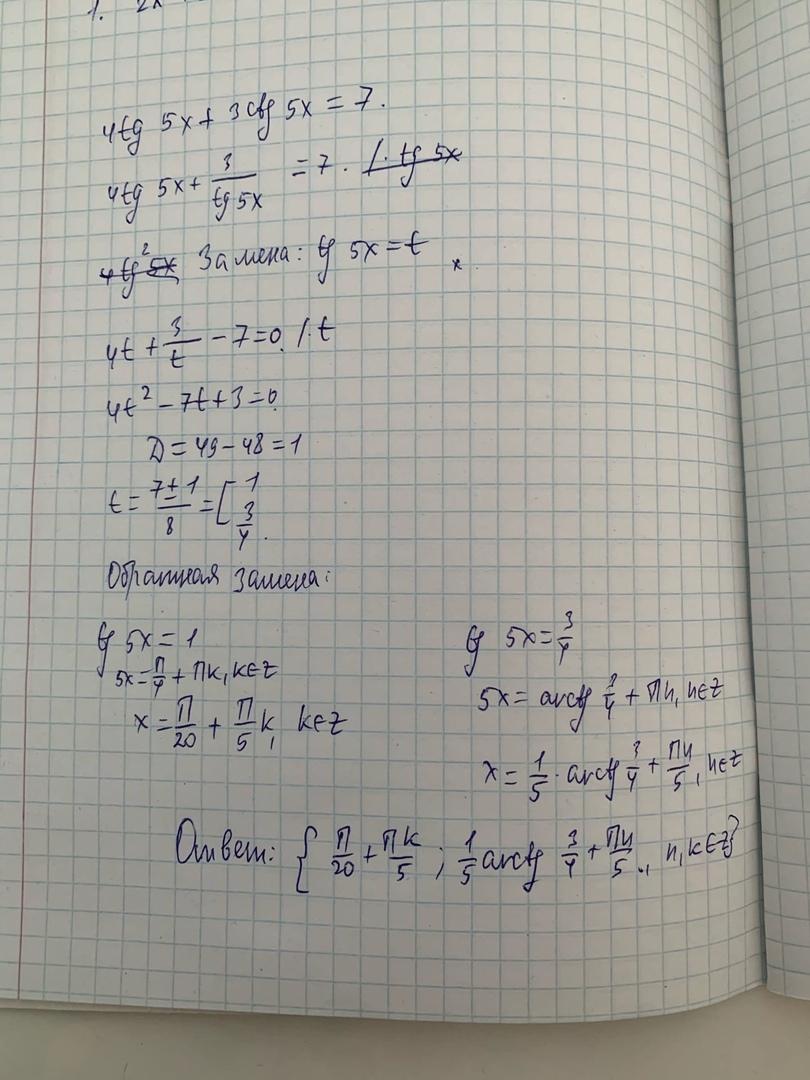 1. 2x
4tg 5x + 3ctg 5x = 7.
4tg 5x + 3/tg 5x = 7. /· tg 5x
4tg² 5x Замена: tg 5x = t
4t + 3/t − 7 = 0. /· t
4t² − 7t + 3 = 0
D = 49 − 48 = 1
t = (7 ± 1)/8 = [ 1
3/4.
Обратная замена:
tg 5x = 1
5x = π/4 + πk, k∈Z
x = π/20 + π/5 k, k∈Z
tg 5x = 3/4
5x = arctg 3/4 + πn, n∈Z
x = 1/5 · arctg 3/4 + πn/5, n∈Z
Ответ: { π/20 + πk/5 ; 1/5 arctg 3/4 + πn/5., n, k∈Z}